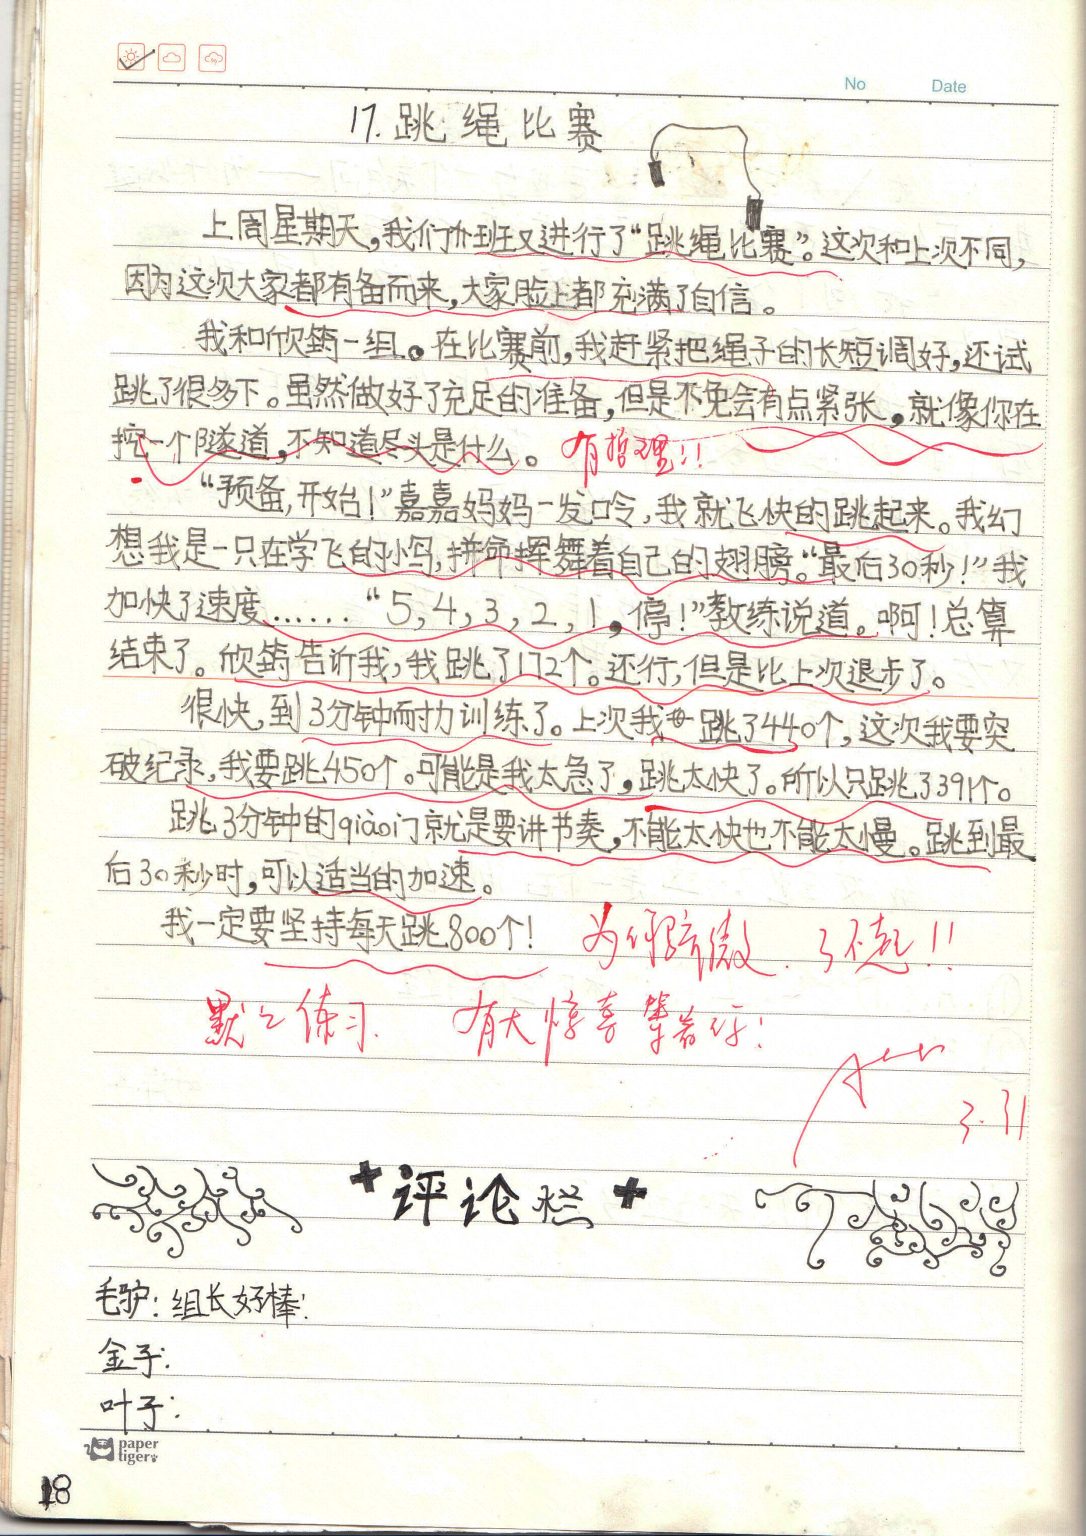 No Date
17.跳绳比赛
上周星期天,我们班又进行了“跳绳比赛”。这次和上次不同,
因为这次大家都有备而来,大家脸上都充满了自信。
我和欣一组。在比赛前,我赶紧把绳子的长短调好,还试
跳了很多下。虽然做好了充足的准备,但是不免会有点紧张,就像你在
挖一个隧道,不知道尽头是什么。 有哲理!!
“预备,开始!”嘉嘉妈妈一发口令,我就飞快的跳起来。我幻
想我是一只在学飞的小鸟,拼命挥舞着自己的翅膀。“最后30秒!”我
加快了速度……“5,4,3,2,1,停!”教练说道。啊!总算
结束了。欣告诉我,我跳了172个。还行,但是比上次退步了。
很快,到3分钟耐力训练了。上次我跳了440个,这次我要突
破纪录,我要跳450个。可能是我太急了,跳太快了。所以只跳了391个。
跳3分钟的qiào门就是要讲节奏,不能太快也不能太慢。跳到最
后30秒时,可以适当的加速。
我一定要坚持每天跳800个! 为你骄傲.了不起!!
默默练习. 有大惊喜等着你!
3.31
评论栏
毛驴:组长好棒!
金子:
叶子:
paper
tiger
18